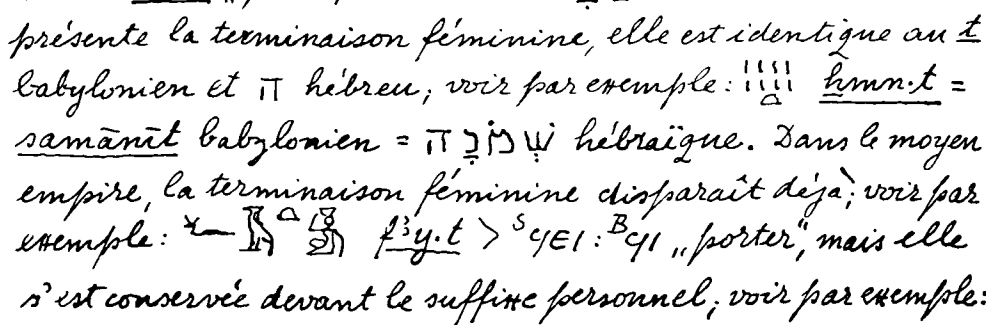 présente la terminaison féminine, elle est identique au t
babylonien et ה hébreu; voir par exemple: 𓏽𓏽𓏏 ḫmn·t =
samānīt babylonien = שְׁמֹנָה hébraïque. Dans le moyen
empire, la terminaison féminine disparaît déjà; voir par
exemple: fꜣy·t > ˢϥⲉⲓ: ᴮϥⲓ „porter", mais elle
s'est conservée devant le suffixe personnel; voir par exemple: